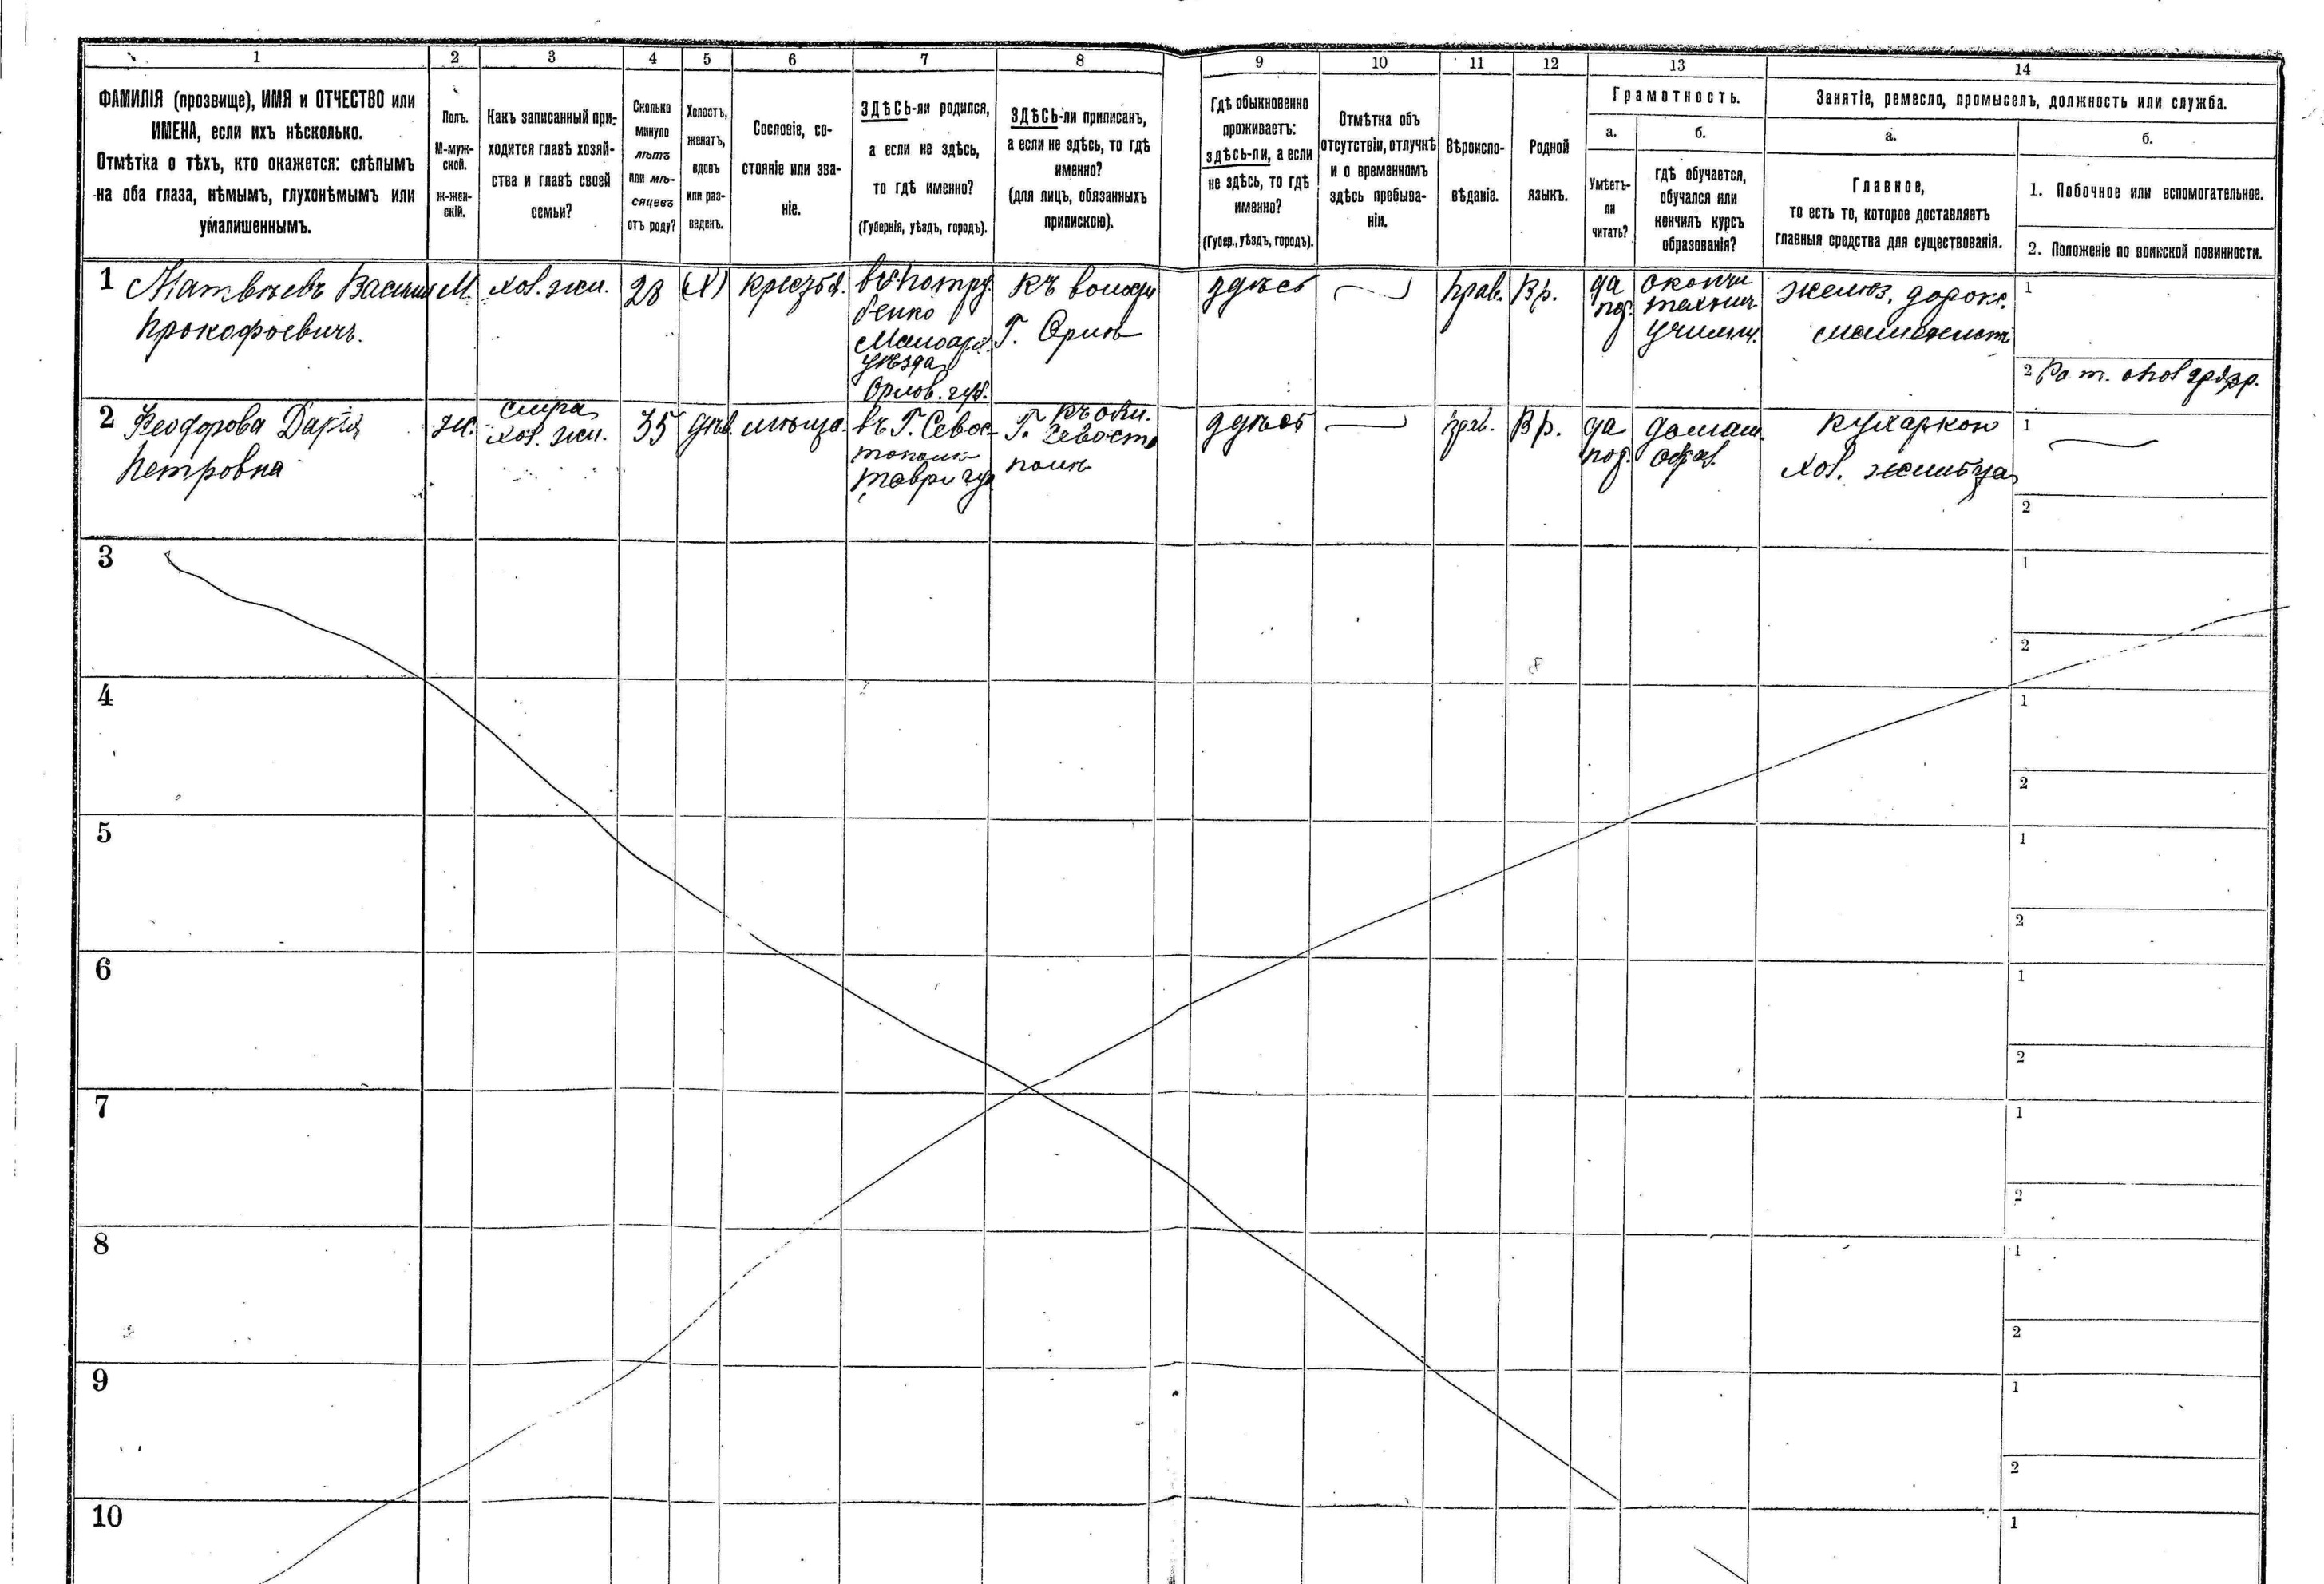 1 2 3 4 5 6 7 8 9 10 11 12 13 14
ФАМИЛІЯ (прозвище), ИМЯ и ОТЧЕСТВО или
ИМЕНА, если ихъ нѣсколько.
Отмѣтка о тѣхъ, кто окажется: слѣпымъ
на оба глаза, нѣмымъ, глухонѣмымъ или
умалишеннымъ.
Полъ.
М-муж-
ской.
ж-жен-
скій.
Какъ записанный при-
ходится главѣ хозяй-
ства и главѣ своей
семьи?
Сколько
минуло
лѣтъ
или мѣ-
сяцевъ
отъ роду?
Холостъ,
женатъ,
вдовъ
или раз-
веденъ.
Сословіе, со-
стояніе или зва-
ніе.
ЗДѢСЬ-ли родился,
а если не здѣсь,
то гдѣ именно?
(Губернія, уѣздъ, городъ).
ЗДѢСЬ-ли приписанъ,
а если не здѣсь, то гдѣ
именно?
(для лицъ, обязанныхъ
припискою).
Гдѣ обыкновенно
проживаетъ:
здѣсь-ли, а если
не здѣсь, то гдѣ
именно?
(Губер., уѣздъ, городъ).
Отмѣтка объ
отсутствіи, отлучкѣ
и о временномъ
здѣсь пребыва-
ніи.
Вѣроиспо-
вѣданіе.
Родной
языкъ.
Грамотность.
а.
Умѣетъ-
ли
читать?
б.
гдѣ обучается,
обучался или
кончилъ курсъ
образованія?
Занятіе, ремесло, промыселъ, должность или служба.
а.
Главное,
то есть то, которое доставляетъ
главныя средства для существованія.
б.
1. Побочное или вспомогательное.
2. Положеніе по воинской повинности.
1 Матвѣевъ Василій
Прокофьевичъ.
М.
хоз. жил.
28
(Х)
крестья.
Малоарх.
уѣзда
Орлов. губ.
къ
г. Орлѣ
здѣсь
прав.
Вр.
да
окончи
технич.
училищ.
желѣз. дорож.
машинист
1
2
2 Феодорова Дарія
Петровна
ж.
хоз. жил.
35
дѣв.
мѣща.
въ г. Севас-
тополѣ
Таврич гу
г.
Севасто
полѣ
здѣсь
прав.
Вр.
да
домаш.
образ.
кухаркой
хоз. жильца
1
2
3
1
2
4
1
2
5
1
2
6
1
2
7
1
2
8
1
2
9
1
2
10
1